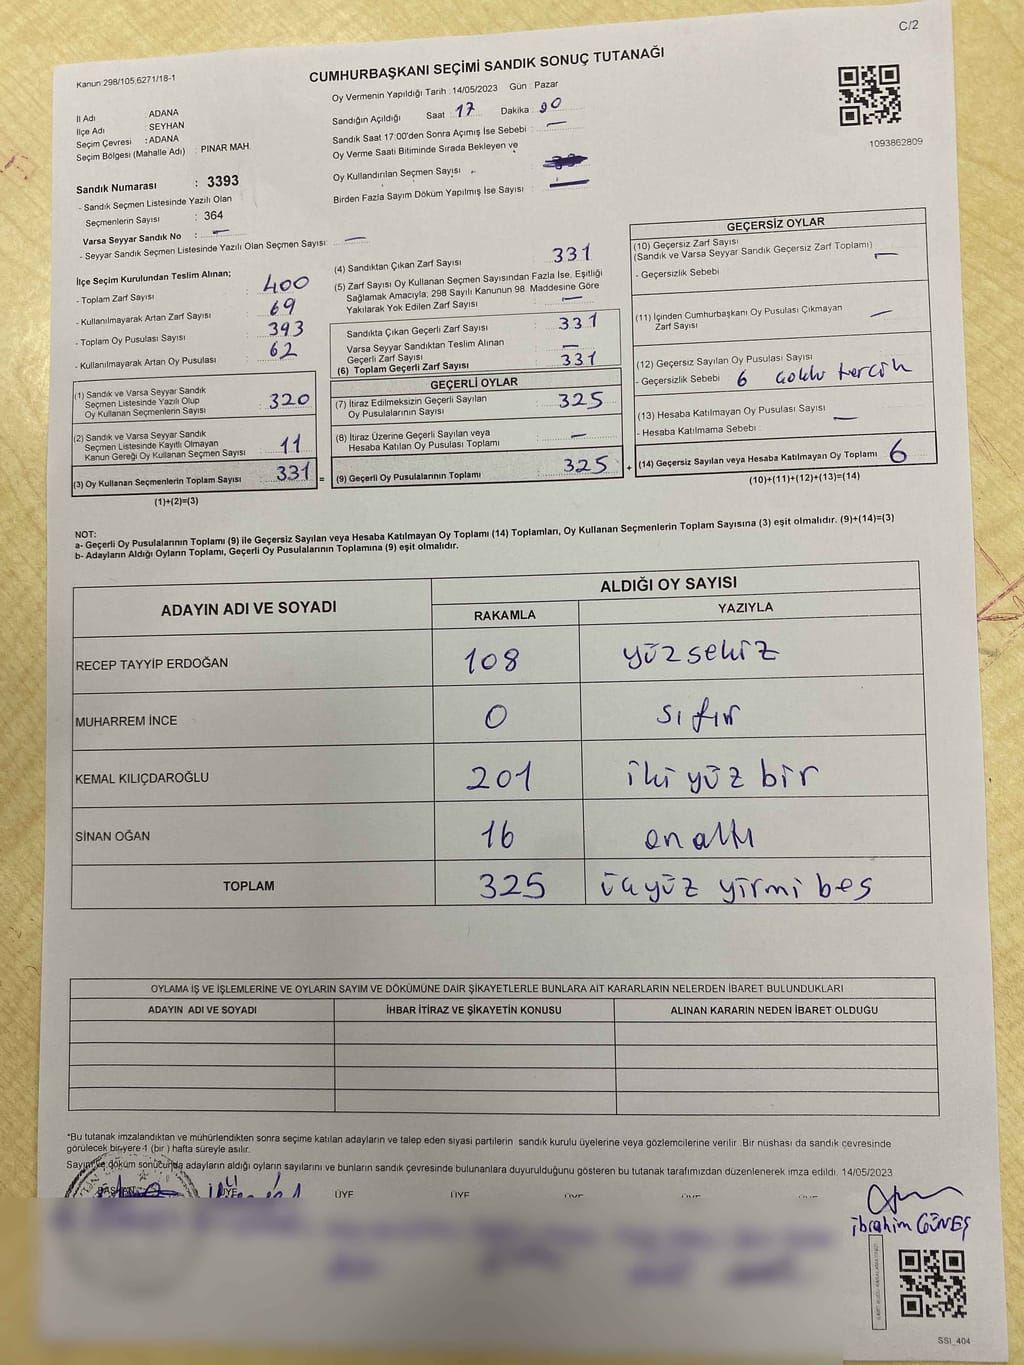 C/2
Kanun:298/105,6271/18-1
CUMHURBAŞKANI SEÇİMİ SANDIK SONUÇ TUTANAĞI
Oy Vermenin Yapıldığı Tarih : 14/05/2023 Gün : Pazar
İl Adı : ADANA
İlçe Adı : SEYHAN
Seçim Çevresi : ADANA
Seçim Bölgesi (Mahalle Adı) : PINAR MAH.
Sandığın Açıldığı Saat : 17 Dakika :
Sandık Saat 17:00'den Sonra Açımış İse Sebebi : —
Oy Verme Saati Bitiminde Sırada Bekleyen ve
Oy Kullandırılan Seçmen Sayısı :
Birden Fazla Sayım Döküm Yapılmış İse Sayısı : —
1093862809
Sandık Numarası : 3393
- Sandık Seçmen Listesinde Yazılı Olan
Seçmenlerin Sayısı : 364
Varsa Seyyar Sandık No : —
- Seyyar Sandık Seçmen Listesinde Yazılı Olan Seçmen Sayısı: —
İlçe Seçim Kurulundan Teslim Alınan;
- Toplam Zarf Sayısı : 400
- Kullanılmayarak Artan Zarf Sayısı : 69
- Toplam Oy Pusulası Sayısı : 393
- Kullanılmayarak Artan Oy Pusulası : 62
(1) Sandık ve Varsa Seyyar Sandık
Seçmen Listesinde Yazılı Olup
Oy Kullanan Seçmenlerin Sayısı : 320
(2) Sandık ve Varsa Seyyar Sandık
Seçmen Listesinde Kayıtlı Olmayan
Kanun Gereği Oy Kullanan Seçmen Sayısı : 11
(3) Oy Kullanan Seçmenlerin Toplam Sayısı : 331 =
(1)+(2)=(3)
(4) Sandıktan Çıkan Zarf Sayısı : 331
(5) Zarf Sayısı Oy Kullanan Seçmen Sayısından Fazla İse, Eşitliği
Sağlamak Amacıyla, 298 Sayılı Kanunun 98. Maddesine Göre
Yakılarak Yok Edilen Zarf Sayısı : —
Sandıkta Çıkan Geçerli Zarf Sayısı : 331
Varsa Seyyar Sandıktan Teslim Alınan
Geçerli Zarf Sayısı : —
(6) Toplam Geçerli Zarf Sayısı : 331
GEÇERLİ OYLAR
(7) İtiraz Edilmeksizin Geçerli Sayılan
Oy Pusulalarının Sayısı : 325
(8) İtiraz Üzerine Geçerli Sayılan veya
Hesaba Katılan Oy Pusulası Toplamı : —
(9) Geçerli Oy Pusulalarının Toplamı : 325 +
GEÇERSİZ OYLAR
(10) Geçersiz Zarf Sayısı
(Sandık ve Varsa Seyyar Sandık Geçersiz Zarf Toplamı) : —
- Geçersizlik Sebebi
(11) İçinden Cumhurbaşkanı Oy Pusulası Çıkmayan
Zarf Sayısı : —
(12) Geçersiz Sayılan Oy Pusulası Sayısı
- Geçersizlik Sebebi : 6 çoklu tercih
(13) Hesaba Katılmayan Oy Pusulası Sayısı : —
- Hesaba Katılmama Sebebi :
(14) Geçersiz Sayılan veya Hesaba Katılmayan Oy Toplamı : 6
(10)+(11)+(12)+(13)=(14)
NOT:
a- Geçerli Oy Pusulalarının Toplamı (9) ile Geçersiz Sayılan veya Hesaba Katılmayan Oy Toplamı (14) Toplamları, Oy Kullanan Seçmenlerin Toplam Sayısına (3) eşit olmalıdır. (9)+(14)=(3)
b- Adayların Aldığı Oyların Toplamı, Geçerli Oy Pusulalarının Toplamına (9) eşit olmalıdır.
ADAYIN ADI VE SOYADI
ALDIĞI OY SAYISI
RAKAMLA YAZIYLA
RECEP TAYYİP ERDOĞAN 108 yüzsekiz
MUHARREM İNCE 0 sıfır
KEMAL KILIÇDAROĞLU 201 iki yüz bir
SİNAN OĞAN 16 onaltı
TOPLAM 325 üçyüz yirmi beş
OYLAMA İŞ VE İŞLEMLERİNE VE OYLARIN SAYIM VE DÖKÜMÜNE DAİR ŞİKAYETLERLE BUNLARA AİT KARARLARIN NELERDEN İBARET BULUNDUKLARI
ADAYIN ADI VE SOYADI İHBAR İTİRAZ VE ŞİKAYETİN KONUSU ALINAN KARARIN NEDEN İBARET OLDUĞU
*Bu tutanak imzalandıktan ve mühürlendikten sonra seçime katılan adayların ve talep eden siyasi partilerin sandık kurulu üyelerine veya gözlemcilerine verilir. Bir nüshası da sandık çevresinde
görülecek bir yere 1 (bir) hafta süreyle asılır.
Sayım ve döküm sonucunda adayların aldığı oyların sayılarını ve bunların sandık çevresinde bulunanlara duyurulduğunu gösteren bu tutanak tarafımızdan düzenlenerek imza edildi. 14/05/2023
BAŞKAN ÜYE ÜYE ÜYE ÜYE
İbrahim GÜNEŞ
SSI_404